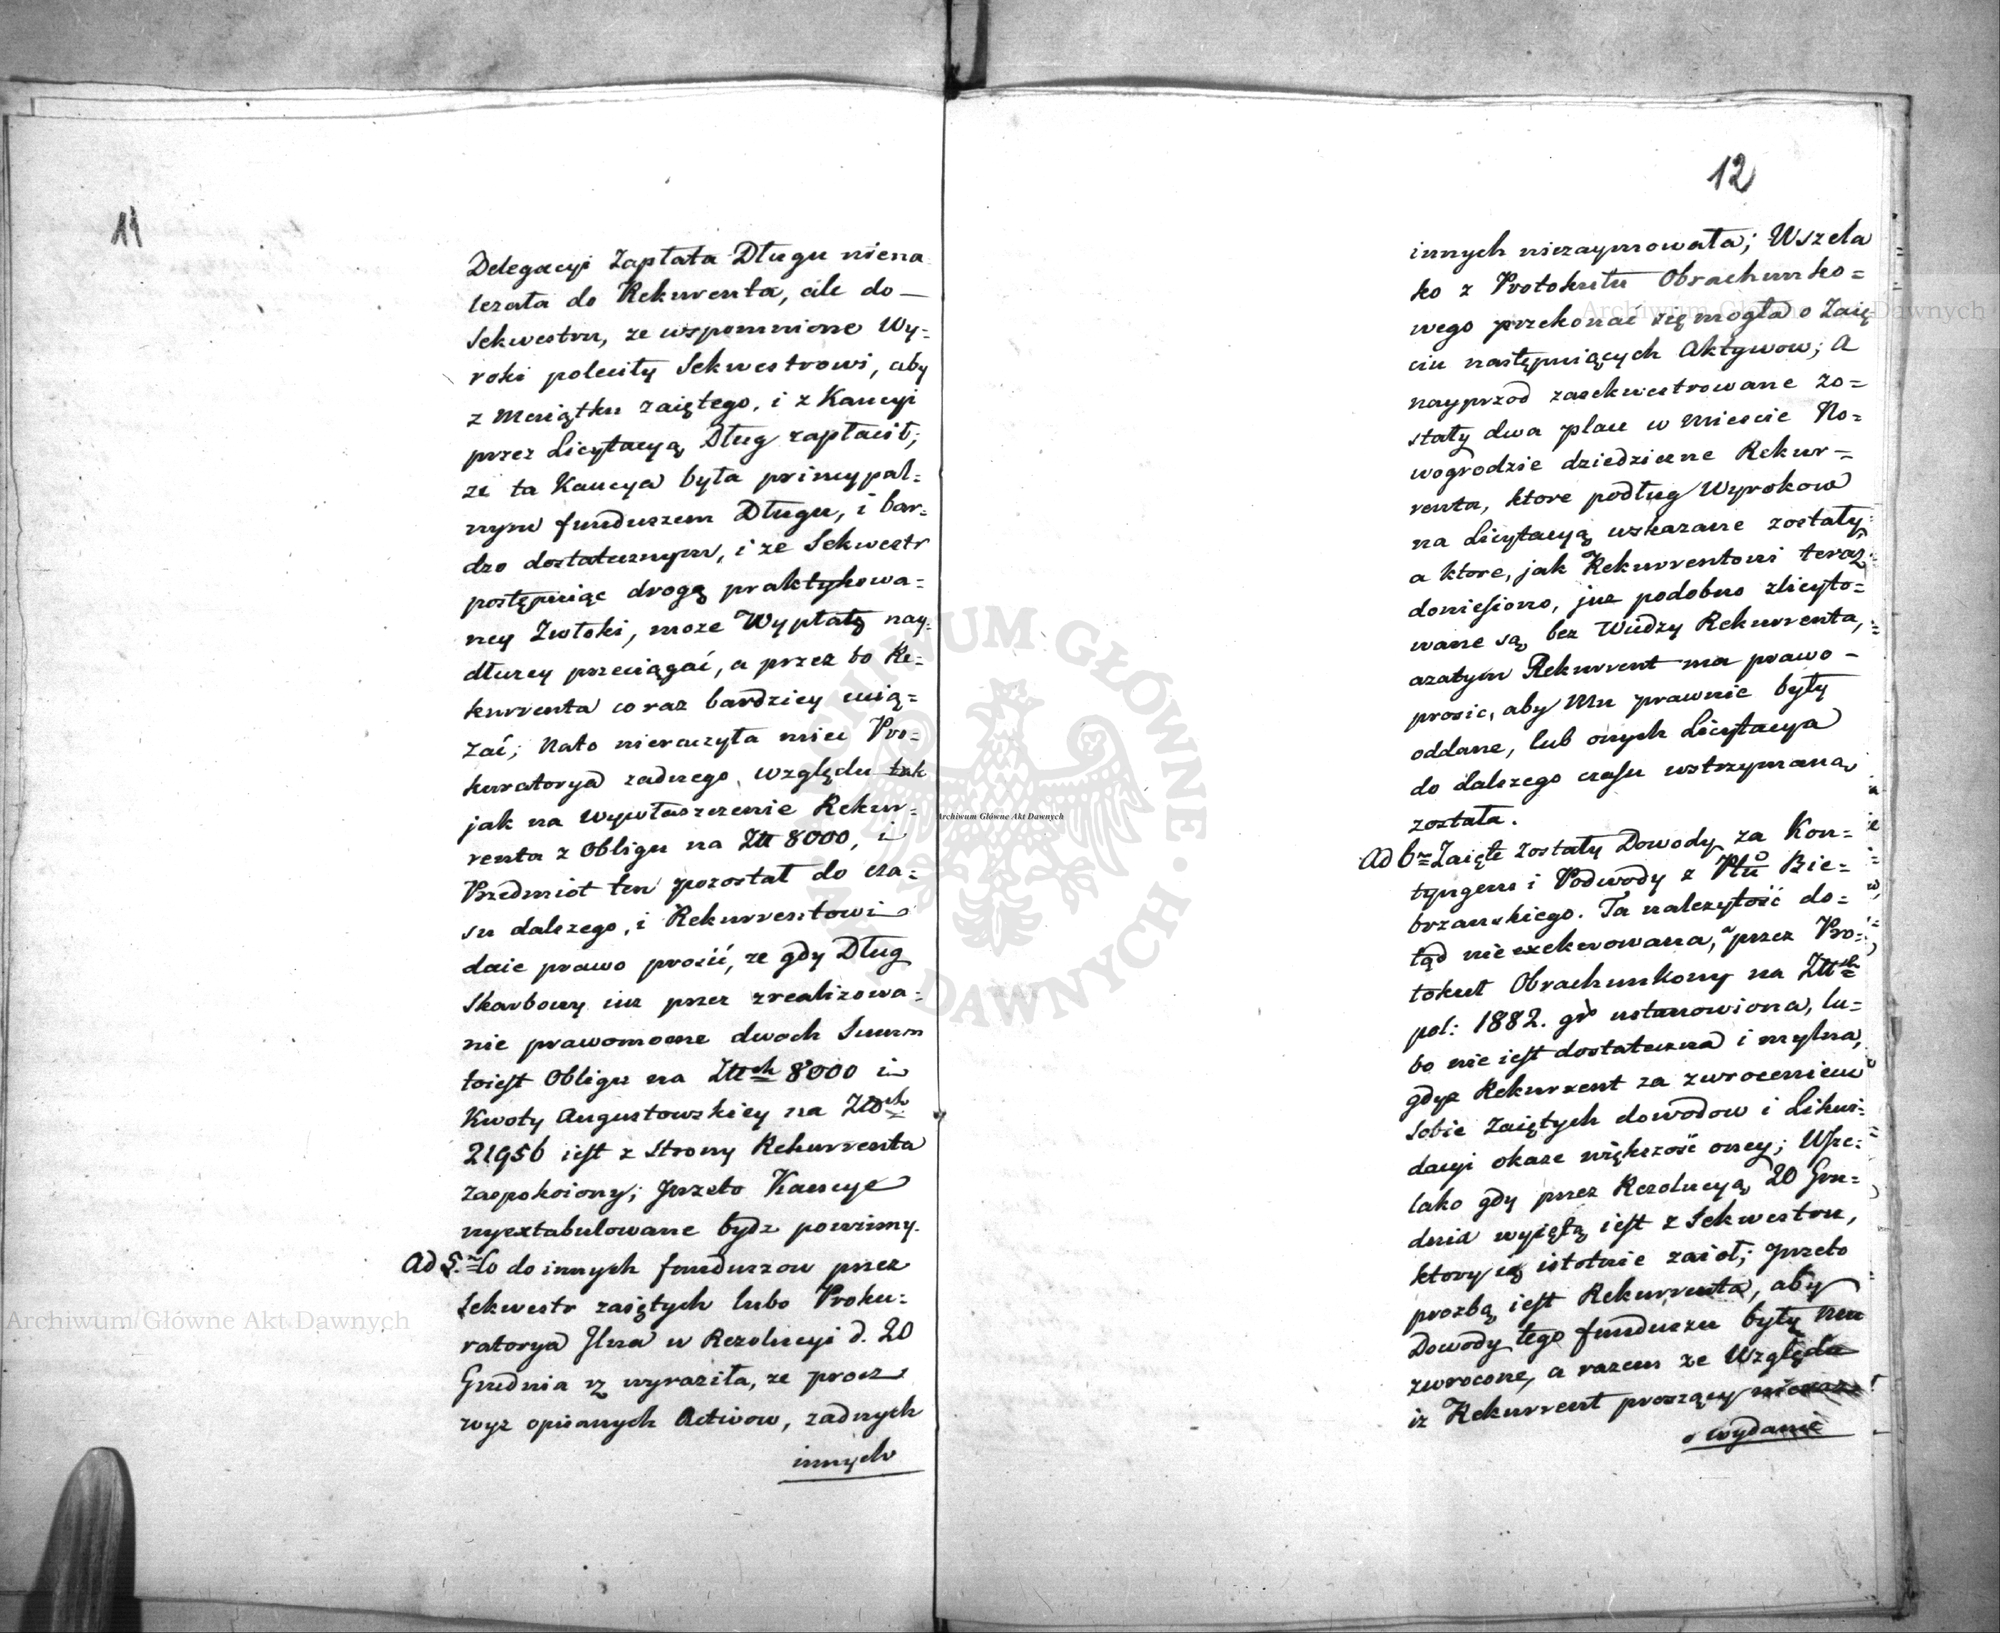 11
Delegacyi Zapłata Długu niena
leżała do Rekurenta, ale do —
Sekwestru, ze wspomnione Wy=
roki poleciły Sekwestrowi, aby
z Maiątku zaiętego, i z Kaucyi
przez Licytacyą Dług zapłacił;
ze ta Kaucya była pryncypal=
nym funduszem Długu, i bar=
dzo dostatecznym, i ze Sekwestr
postępuiąc drogą praktykowa=
ney Zwłoki, moze Wypłatę nay=
dłuzey przeciągać, a przez to Re=
kurrenta coraz bardziey wią=
zać; Nato nieraczyła miec Pro=
kuratorya zadnego względu tak
jak na wywłaszczenie Rekur=
renta z Obligu na Złł 8000, i
Przedmiot ten pozostał do cza=
su dalszego, i Rekurrentowi
daie prawo prosić, ze gdy Dług
Skarbowy iuz przez zrealizowa=
nie prawomocne dwoch Summ
toiest Obligu na Złłch 8000 i
Kwoty Augustowskiey na Złłch
21956 iest z Strony Rekurrenta
zaspokoiony; przeto Kaucye
wyextabulowane bydz powinny.
Ad 5. Co do innych funduszow przez
Sekwestr zaiętych lubo Proku=
ratorya Jlna w Rezolucyi d. 20
Grudnia wyraziła, ze procz
wyz opisanych Activow, zadnych
innych
12
innych niezaymowała; Wszela
ko z Protokułu Obrachunko=
wego przekonac się mogła o Zaię
ciu następuiących Aktywow; A
nayprzod zasekwestrowane zo=
stały dwa place w Miescie No=
wogrodzie dziedziczne Rekur=
renta, ktore podług Wyrokow
na Licytacyą wskazane zostały,
a ktore, jak Rekurrentowi teraz
doniesiono, juz podobno zlicyto=
wane są bez Wiedzy Rekurrenta,
azatym Rekurrent ma prawo —
prosic, aby Mu prawnie były
oddane, lub onych Licytacya
do dalszego czasu wstrzymana
została.
Ad 6. Zaięte zostały Dowody za Kon=
tyngens i Podwody z Ptu Bie=
brzanskiego. Ta nalezytość do=
tąd nie exekwowana, a przez Pro=
tokuł Obrachunkowy na Złłch
pol: 1882. gr ustanowiona, lu=
bo nie iest dostateczna i mylna,
gdyz Rekurrent za zwroceniem
sobie Zaiętych dowodow i Likwi=
dacyi okaze większość oney; Wsze=
lako gdy przez Rezolucyą 20 Gru=
dnia wyiętą iest z Sekwestru,
ktory ią istotnie zaiął; przeto
prozbą iest Rekurrenta, aby
Dowody tego funduszu były Mu
zwrocone, a razem ze Względu
iz Rekurrent proszący
o wydanie
Archiwum Główne Akt Dawnych
Archiwum Główne Akt Dawnych
Archiwum Główne Akt Dawnych
ARCHIWUM GŁÓWNE · AKT DAWNYCH ·